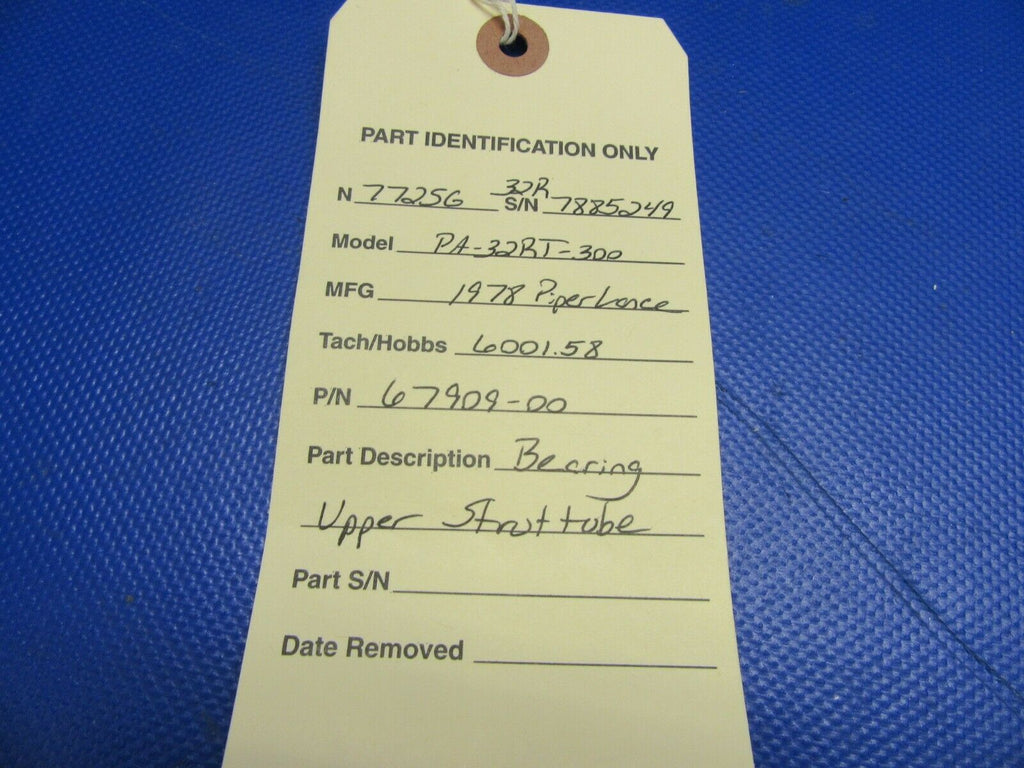 PART IDENTIFICATION ONLY
N 77256 32R S/N 7885249
Model PA-32RT-300
MFG 1978 Piper Lance
Tach/Hobbs 6001.58
P/N 67909-00
Part Description Bearing
Upper Strut tube
Part S/N
Date Removed